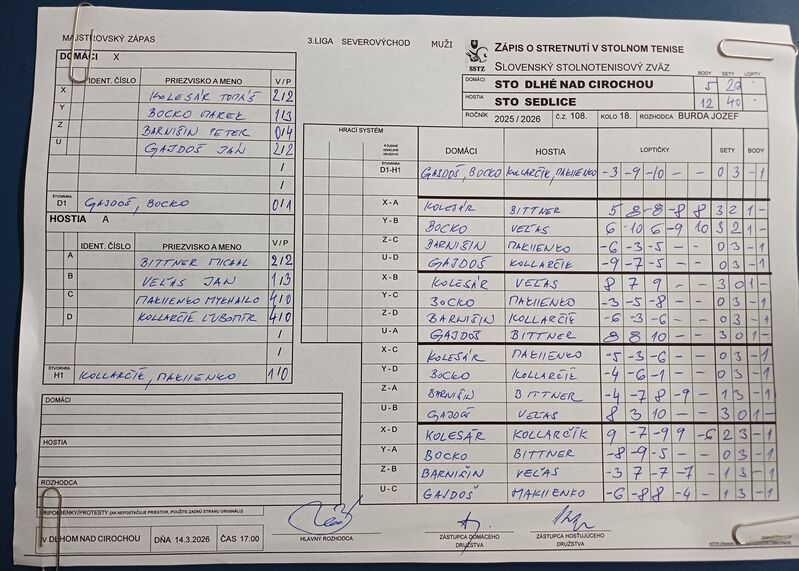 MAJSTROVSKÝ ZÁPAS
3.LIGA SEVEROVÝCHOD MUŽI
SSTZ
ZÁPIS O STRETNUTÍ V STOLNOM TENISE
SLOVENSKÝ STOLNOTENISOVÝ ZVÄZ
BODY SETY LOPTY
DOMÁCI STO DLHÉ NAD CIROCHOU 5 20
HOSTIA STO SEDLICE 12 40
ROČNÍK 2025 / 2026 Č.Z. 108. KOLO 18. ROZHODCA BURDA JOZEF
DOMÁCI X
IDENT. ČÍSLO PRIEZVISKO A MENO V / P
X KOLESÁR TOMÁŠ 2/2
Y BOCKO MAREK 1/3
Z BARNIŠIN PETER 0/4
U GAJDOŠ JÁN 2/2
/
/
ŠTVORHRA D1 GAJDOŠ, BOCKO 0/1
HOSTIA A
IDENT. ČÍSLO PRIEZVISKO A MENO V / P
A BITTNER MICHAL 2/2
B VEĽAS JÁN 1/3
C MAKIIENKO MYKHAILO 4/0
D KOLLARČÍK ĽUBOMÍR 4/0
/
/
ŠTVORHRA H1 KOLLARČÍK, MAKIIENKO 1/0
DOMÁCI
HOSTIA
ROZHODCA
HRACÍ SYSTÉM DOMÁCI HOSTIA LOPTIČKY SETY BODY
D1-H1 GAJDOŠ, BOCKO KOLLARČÍK, MAKIIENKO -3 -9 -10 - - 0 3 -1
X - A KOLESÁR BITTNER 5 8 -8 -8 8 3 2 1 -
Y - B BOCKO VEĽAS 6 -10 6 -9 10 3 2 1 -
Z - C BARNIŠIN MAKIIENKO -6 -3 -5 - - 0 3 -1
U - D GAJDOŠ KOLLARČÍK -9 -7 -5 - - 0 3 -1
X - B KOLESÁR VEĽAS 8 7 9 - - 3 0 1 -
Y - C BOCKO MAKIIENKO -3 -5 -8 - - 0 3 -1
Z - D BARNIŠIN KOLLARČÍK -6 -3 -6 - - 0 3 -1
U - A GAJDOŠ BITTNER 8 8 10 - - 3 0 1 -
X - C KOLESÁR MAKIIENKO -5 -3 -6 - - 0 3 -1
Y - D BOCKO KOLLARČÍK -4 -6 -1 - - 0 3 -1
Z - A BARNIŠIN BITTNER -4 -7 8 -9 - 1 3 -1
U - B GAJDOŠ VEĽAS 8 3 10 - - 3 0 1 -
X - D KOLESÁR KOLLARČÍK 9 -7 -9 9 -6 2 3 -1
Y - A BOCKO BITTNER -8 -9 -5 - - 0 3 -1
Z - B BARNIŠIN VEĽAS -3 7 -7 -7 - 1 3 -1
U - C GAJDOŠ MAKIIENKO -6 -8 8 -4 - 1 3 -1
PRIPOMIENKY/PROTESTY (AK NEPOSTAČUJE PRIESTOR, POUŽITE ZADNÚ STRANU ORIGINÁLU)
V DLHOM NAD CIROCHOU DŇA 14.3.2026 ČAS 17:00
HLAVNÝ ROZHODCA
ZÁSTUPCA DOMÁCEHO DRUŽSTVA
ZÁSTUPCA HOSŤUJÚCEHO DRUŽSTVA